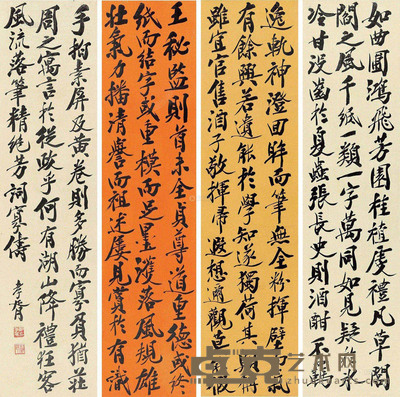 如曲圃鴻飛芳園桂植虔禮凡草閭
閻之風千紙一類一字萬同如見疑
冷甘沒齒於夏蟲張長史則酒酣不羈
逸軌神澄回眸而筆無全粉揮壁氣
有餘興若遺能於學知遂獨荷其顛稱
雖宜官售酒子敬揮帚遐想邇觀莫能假
王秘監則首末全貞尊道重德或終
紙而結字或重模而足墨灑落風規雄
壯氣力播清譽而祖述屢見賞於有識
手拘素屏及黃卷則多勝而寡負猶莊
周之寓言於從政乎何有湖山降禮狂客
風流落筆精絕芳詞寡儔
孝胥
艺术网